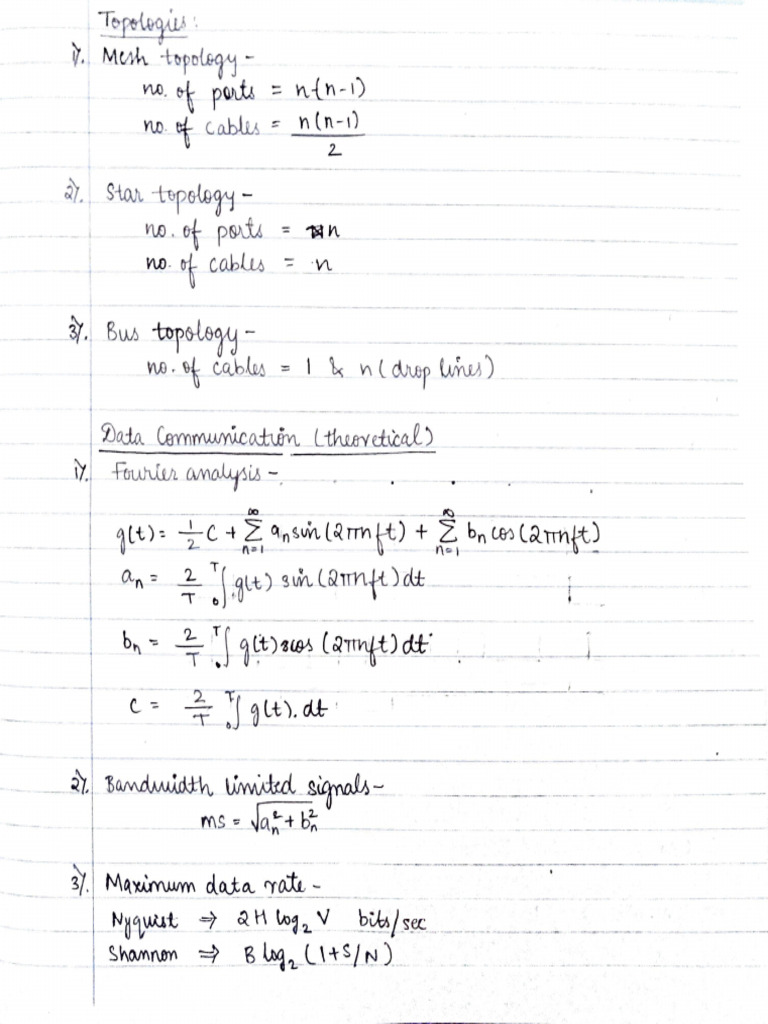 Topologies:
1). Mesh topology -
no. of ports = n(n-1)
no. of cables = n(n-1)/2
2). Star topology -
no. of ports = n
no. of cables = n
3). Bus topology -
no. of cables = 1 & n (drop lines)
Data Communication (theoretical)
1). Fourier analysis -
g(t) = 1/2 C + ∑_{n=1}^{∞} a_n sin(2πnft) + ∑_{n=1}^{∞} b_n cos(2πnft)
a_n = 2/T ∫_0^T g(t) sin(2πnft) dt
b_n = 2/T ∫_0^T g(t) cos(2πnft) dt
c = 2/T ∫_0^T g(t). dt
2). Bandwidth limited signals -
ms = √(a_n² + b_n²)
3). Maximum data rate -
Nyquist ⇒ 2H log₂ V bits/sec
Shannon ⇒ B log₂ (1+S/N)